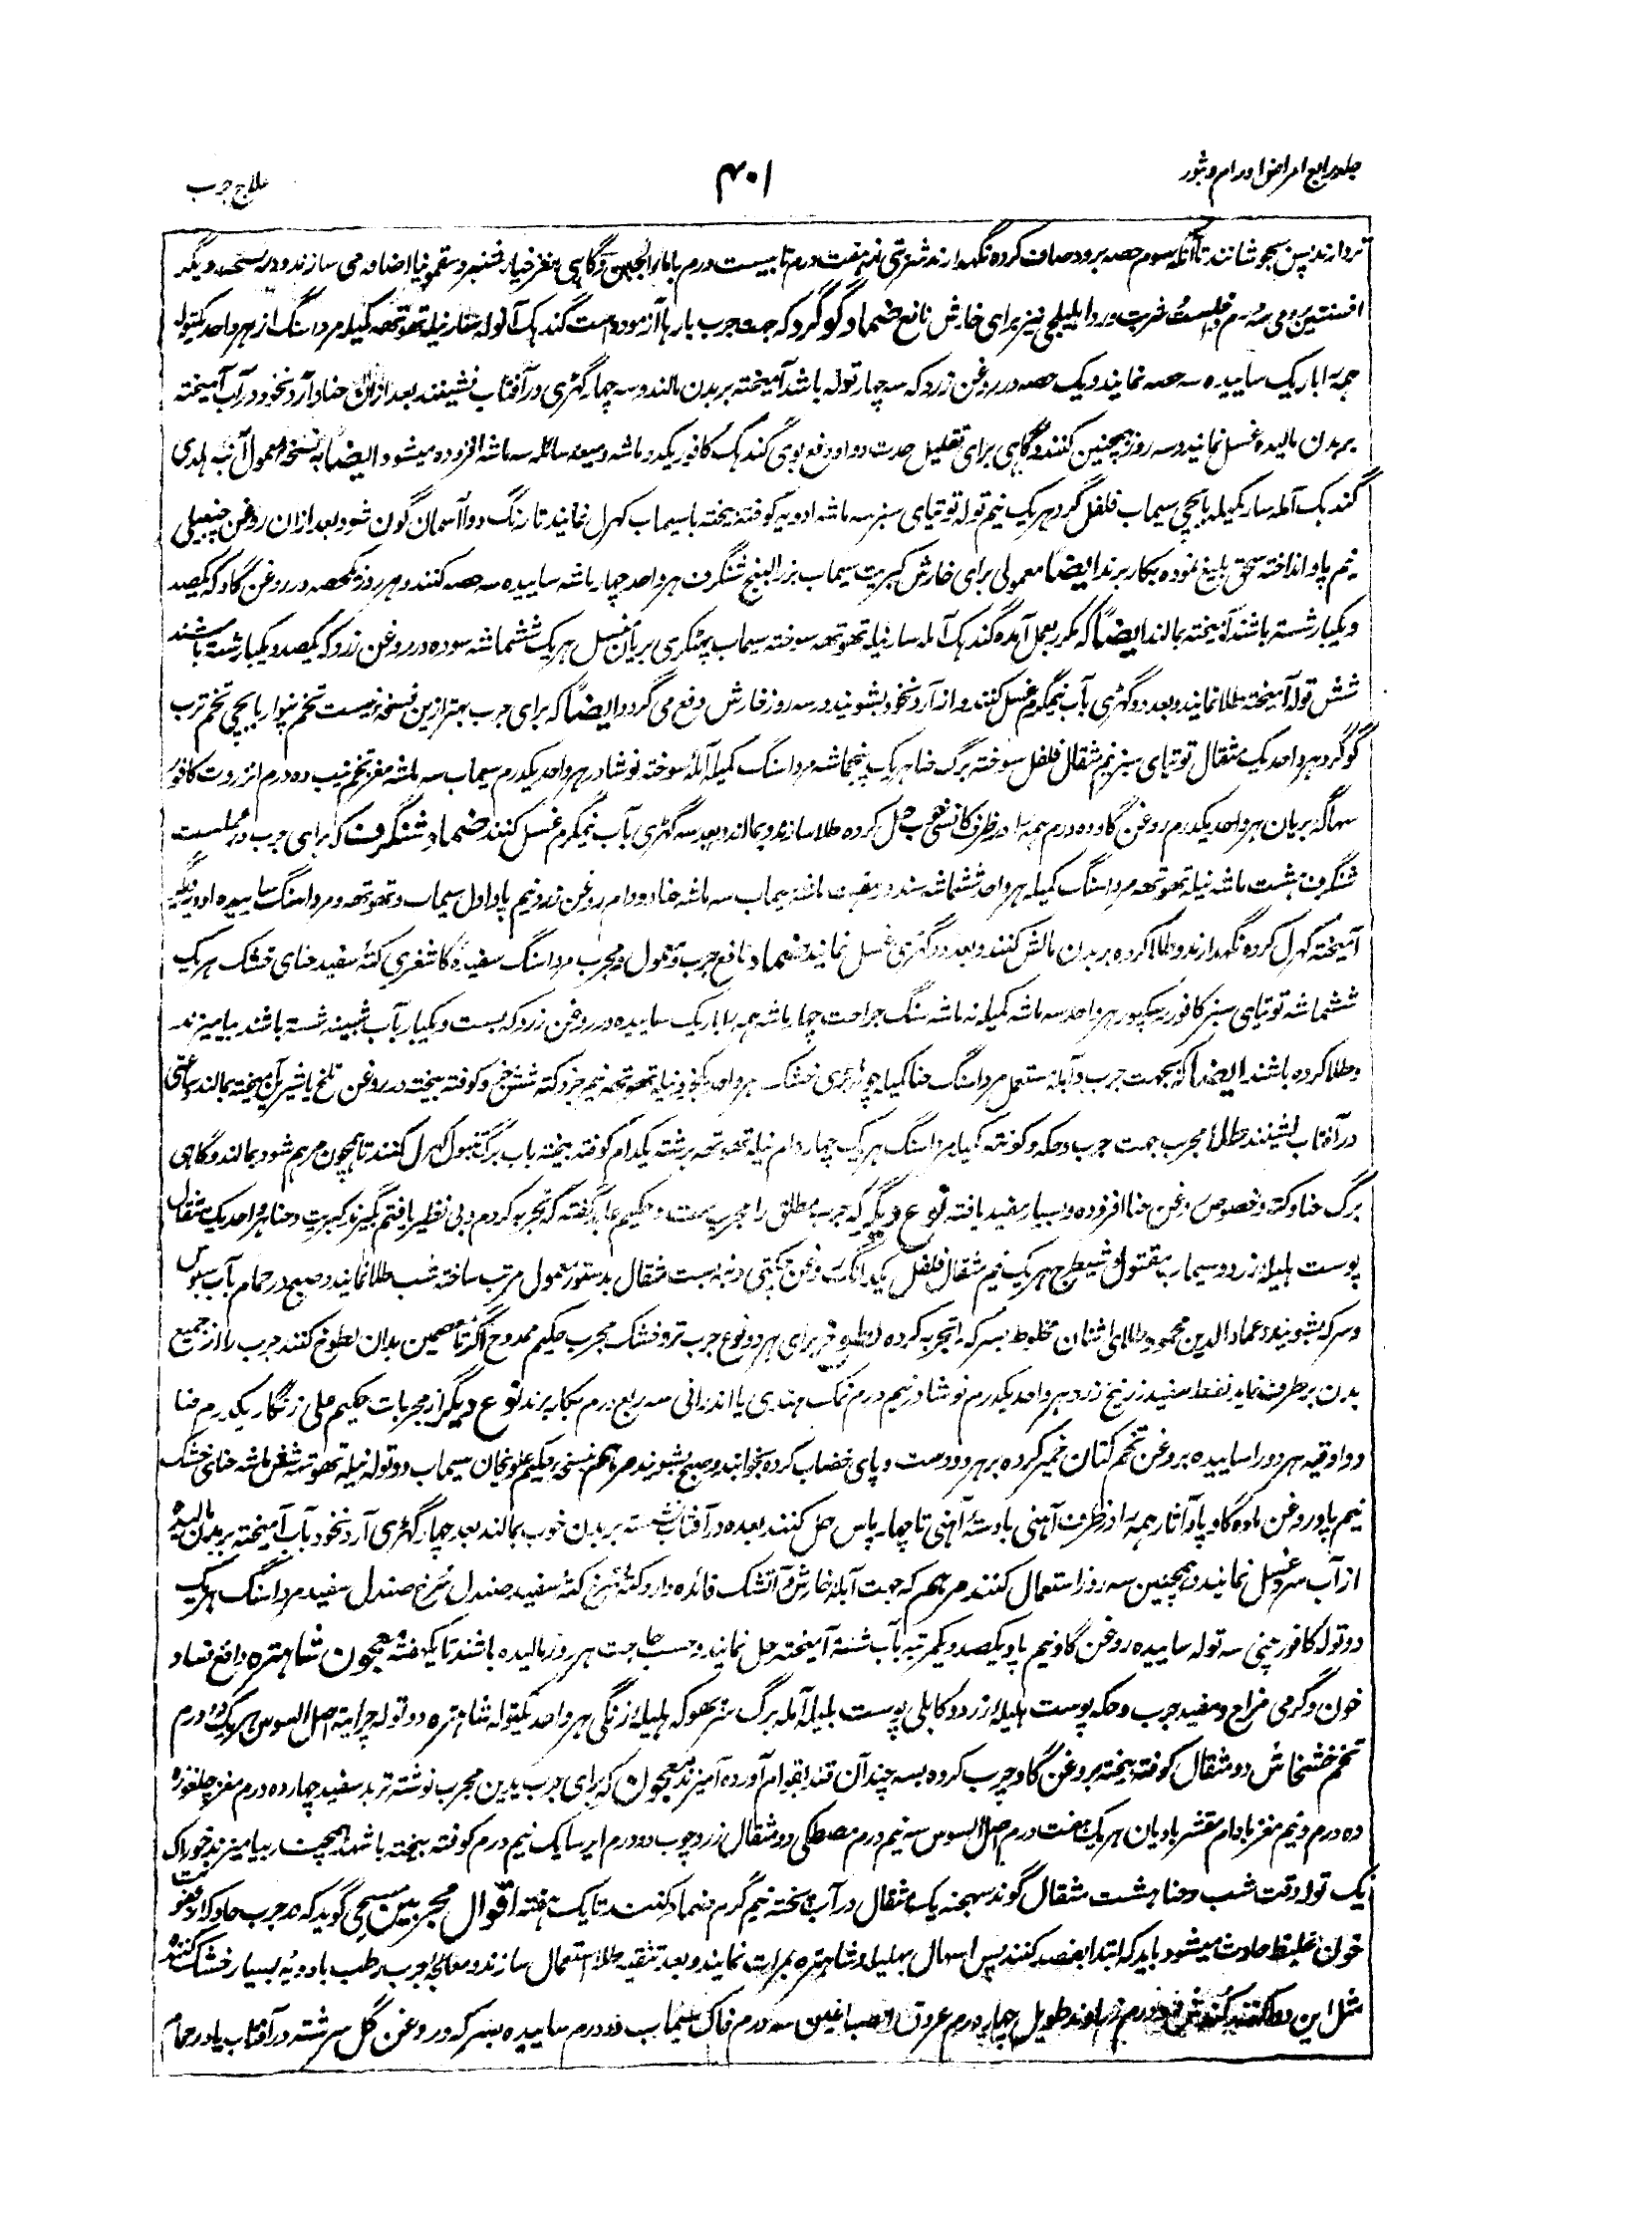 جلد رابع امراض اورام و بثور
۴۰۱
علاج جرب
تر دارند پس بجوشانند تا آنکه سوم حصه برود صاف کرده نگهدارند شربتی از هفت درم تا بیست درم با ماء الجبن و گاهی مغز خیارشنبر و سقمونیا اضافه می سازند و در نسخه دیگر
افسنتین رومی سه درم داخلست شربت ورد اهلیلجی نیز برای خارش نافع ضماد گوگرد که جهت جرب بارها آزموده است گندهک آنوله سار نیله تهوتهه کمیله مردار سنگ از هر واحد یکتوله
همه را باریک ساییده سه حصه نمایند و یک حصه در روغن زرد که سه چهار توله باشد آمیخته بر بدن مالند و سه چهار گهڑی در آفتاب نشینند بعد ازان حنا و آرد نخود در آب آمیخته
بر بدن مالیده غسل نمایند و سه روز همچنین کنند و گاهی برای تقلیل حدت دوا و دفع بوی گندهک کافور یکدو ماشه و میعه سائله سه ماشه افزوده میشود ایضا به نسخه معمول آنبه هلدی
گندهک آمله سار کمیله بابچی سیماب فلفل گرد هر یک نیم توله توتیای سبز سه ماشه ادویه کوفته بیخته با سیماب کهرل نمایند تا رنگ دوا آسمان گون شود بعد ازان روغن چنبیلی
نیم پاو انداخته سحق بلیغ نموده بکار برند ایضا معمولی برای خارش کبریت سیماب بزر البنج شنگرف هر واحد چهار ماشه ساییده سه حصه کنند و هر روز یکحصه در روغن گاو که یکصد
و یکبار شسته باشند آمیخته بمالند ایضا که مکرر بعمل آمده گندهک آمله سار نیله تهوتهه سوخته سیماب پهٹکری بریان نسل هر یک ششماشه سوده در روغن زرد که یکصد و یکبار شسته باشند
شش توله آمیخته طلا نمایند و بعد دو گهڑی بآب نیمگرم غسل کنند و از آرد نخود بشویند در سه روز خارش دفع می گردد ایضا که برای جرب بهتر ازین نسخه نیست تخم پنوار بابچی تخم ترب
گوگرد هر واحد یک مثقال توتیای سبز نیم مثقال فلفل سوخته برگ حنا هر یک پنجماشه مردار سنگ کمیله آمله سوخته نوشادر هر واحد یکدرم سیماب سه ماشه مغز تخم نیب ده درم انزروت کافور
سهاگه بریان هر واحد یکدرم روغن گاو ده درم همه را در ظرف کانسی خوب حل کرده طلا سازند و بمالند و بعد سه گهڑی بآب نیمگرم غسل کنند ضماد شنگرف که برای جرب در عملست
شنگرف هشت ماشه نیله تهوتهه مردار سنگ کمیله هر واحد ششماشه سیندور هفت ماشه سیماب سه ماشه حنا دو دام روغن زرد نیم پاو اول سیماب و تهوتهه و مردار سنگ ساییده ادویه دیگر
آمیخته کهرل کرده نگهدارند و طلا کرده بر بدن مالش کنند و بعد دو گهڑی غسل نمایند ضماد نافع جرب و معمول و مجرب مردار سنگ سفیده کاشغری کتهه سفید حنای خشک هر یک
ششماشه توتیای سبز کافور رسکپور هر واحد سه ماشه کمیله نه ماشه سنگ جراحت چهار ماشه همه را باریک ساییده در روغن زرد که بست و یکبار بآب شبینه شسته باشند بیامیزند
و طلا کرده باشند ایضا که بجهت جرب و آبله مستعمل مردار سنگ حنا کمیله خشک هر واحد یکجزو نیله تهوتهه نیم جزو کتهه شش جزو کوفته بیخته در روغن تلخ یا شیرین آمیخته بمالند و ساعتی
در آفتاب نشینند طلاء مجرب جهت جرب و حکه و کوفته کمیله مردار سنگ هر یک چهار دام نیله تهوتهه برشته یکدام کوفته بیخته بآب برگ تنبول کهرل کنند تا همچون مرهم شود بمالند و گاهی
برگ حنا و کتهه و خصوص روغن حنا افزوده و بسیار مفید یافته نوع دیگر که جرب مطلق را مجرب ست و حکیم علی گفته که تجربه کردم و بی نظیر یافتم بگیرند کبریت و حنا هر واحد یک مثقال
پوست هلیله زرد و سیماب مقتول و شیطرج هر یک نیم مثقال فلفل یکدانگ روغن بست مثقال بدستور معمول مرتب ساخته شب طلا نمایند و صبح در حمام بآب سبوس
و سرکه بشویند و عماد الدین محمود طلای اشنان مخلوط بسرکه را تجربه کرده لطوخ برای هر دو نوع جرب تر و خشک مجرب حکیم ممدوح اگر تا معصمین بدان لطوخ کنند جرب را از جمیع
بدن برطرف نماید نفط سفید زرنیخ زرد هر واحد یکدرم نوشادر نیم درم نمک هندی یا اندرانی سه ربع درم بکار برند نوع دیگر از مجربات حکیم علی زنگار یکدرم حنا
دو اوقیه هر دو را ساییده بروغن تخم کتان خمیر کرده بر هر دو دست و پای خضاب کرده بخوابند و صبح بشویند مرهم نسخه حکیم علویخان سیماب دو توله نیله تهوتهه شش ماشه حنای خشک
نیم پاو روغن ماده گاو پاو آثار همه را در ظرف آهنی با دسته آهنی تا چهار پاس حل کنند بعده در آفتاب نشسته بر بدن خوب بمالند بعد چهار گهڑی آرد نخود بآب آمیخته بر بدن مالیده
از آب سرد غسل نمایند و همچنین سه روز استعمال کنند مرهم که جهت آبله خارش و آتشک فائده دارد کتهه سرخ کتهه سفید صندل سرخ صندل سفید مردار سنگ هر یک
دو توله کافور چینی سه توله ساییده روغن گاو نیم پاو یکصد و یکمرتبه بآب شسته آمیخته حل نمایند و حسب حاجت هر روز مالیده باشند تا یکهفته معجون شاهتره دافع فساد
خون و گرمی مزاج و مفید جرب و حکه پوست هلیله زرد و کابلی پوست بلیله آمله برگ هلیله زنگی هر واحد یکتوله شاهتره دو توله چرایته اصل السوس هر یک دو درم
تخم خشخاش دو مثقال کوفته بیخته بروغن گاو چرب کرده بسه چندان قند بقوام آورده آمیزند معجون که برای جرب بدین مجرب نوشته تربد سفید چهارده درم مغز چلغوزه
ده درم و نیم مغز بادام مقشر بادیان هر یک هفت درم اصل السوس سه نیم درم مصطکی دو مثقال زرد چوب دو درم ایرسا یک نیم درم کوفته بیخته باشد بیامیزند خوراک
یک توله وقت شب و حنا هشت مثقال گوند سهجنه یک مثقال در آب پخته نیم گرم ضماد کنند تا یک هفته اقوال مجربین مسیحی گوید که در جرب حاد که از عفونت
خون غلیظ حادث میشود باید که ابتدا بفصد کنند پس اسهال بهلیله و شاهتره بمرات نمایند و بعد تنقیه طلا استعمال سازند و معالجه جرب رطب بادویه بسیار خشک کننده
مثل این طلا کنند کندش درم زراوند طویل چهار درم عروق الصباغین سه درم خاک سیماب دو درم ساییده بسرکه و روغن گل سرشته در آفتاب یا در حمام